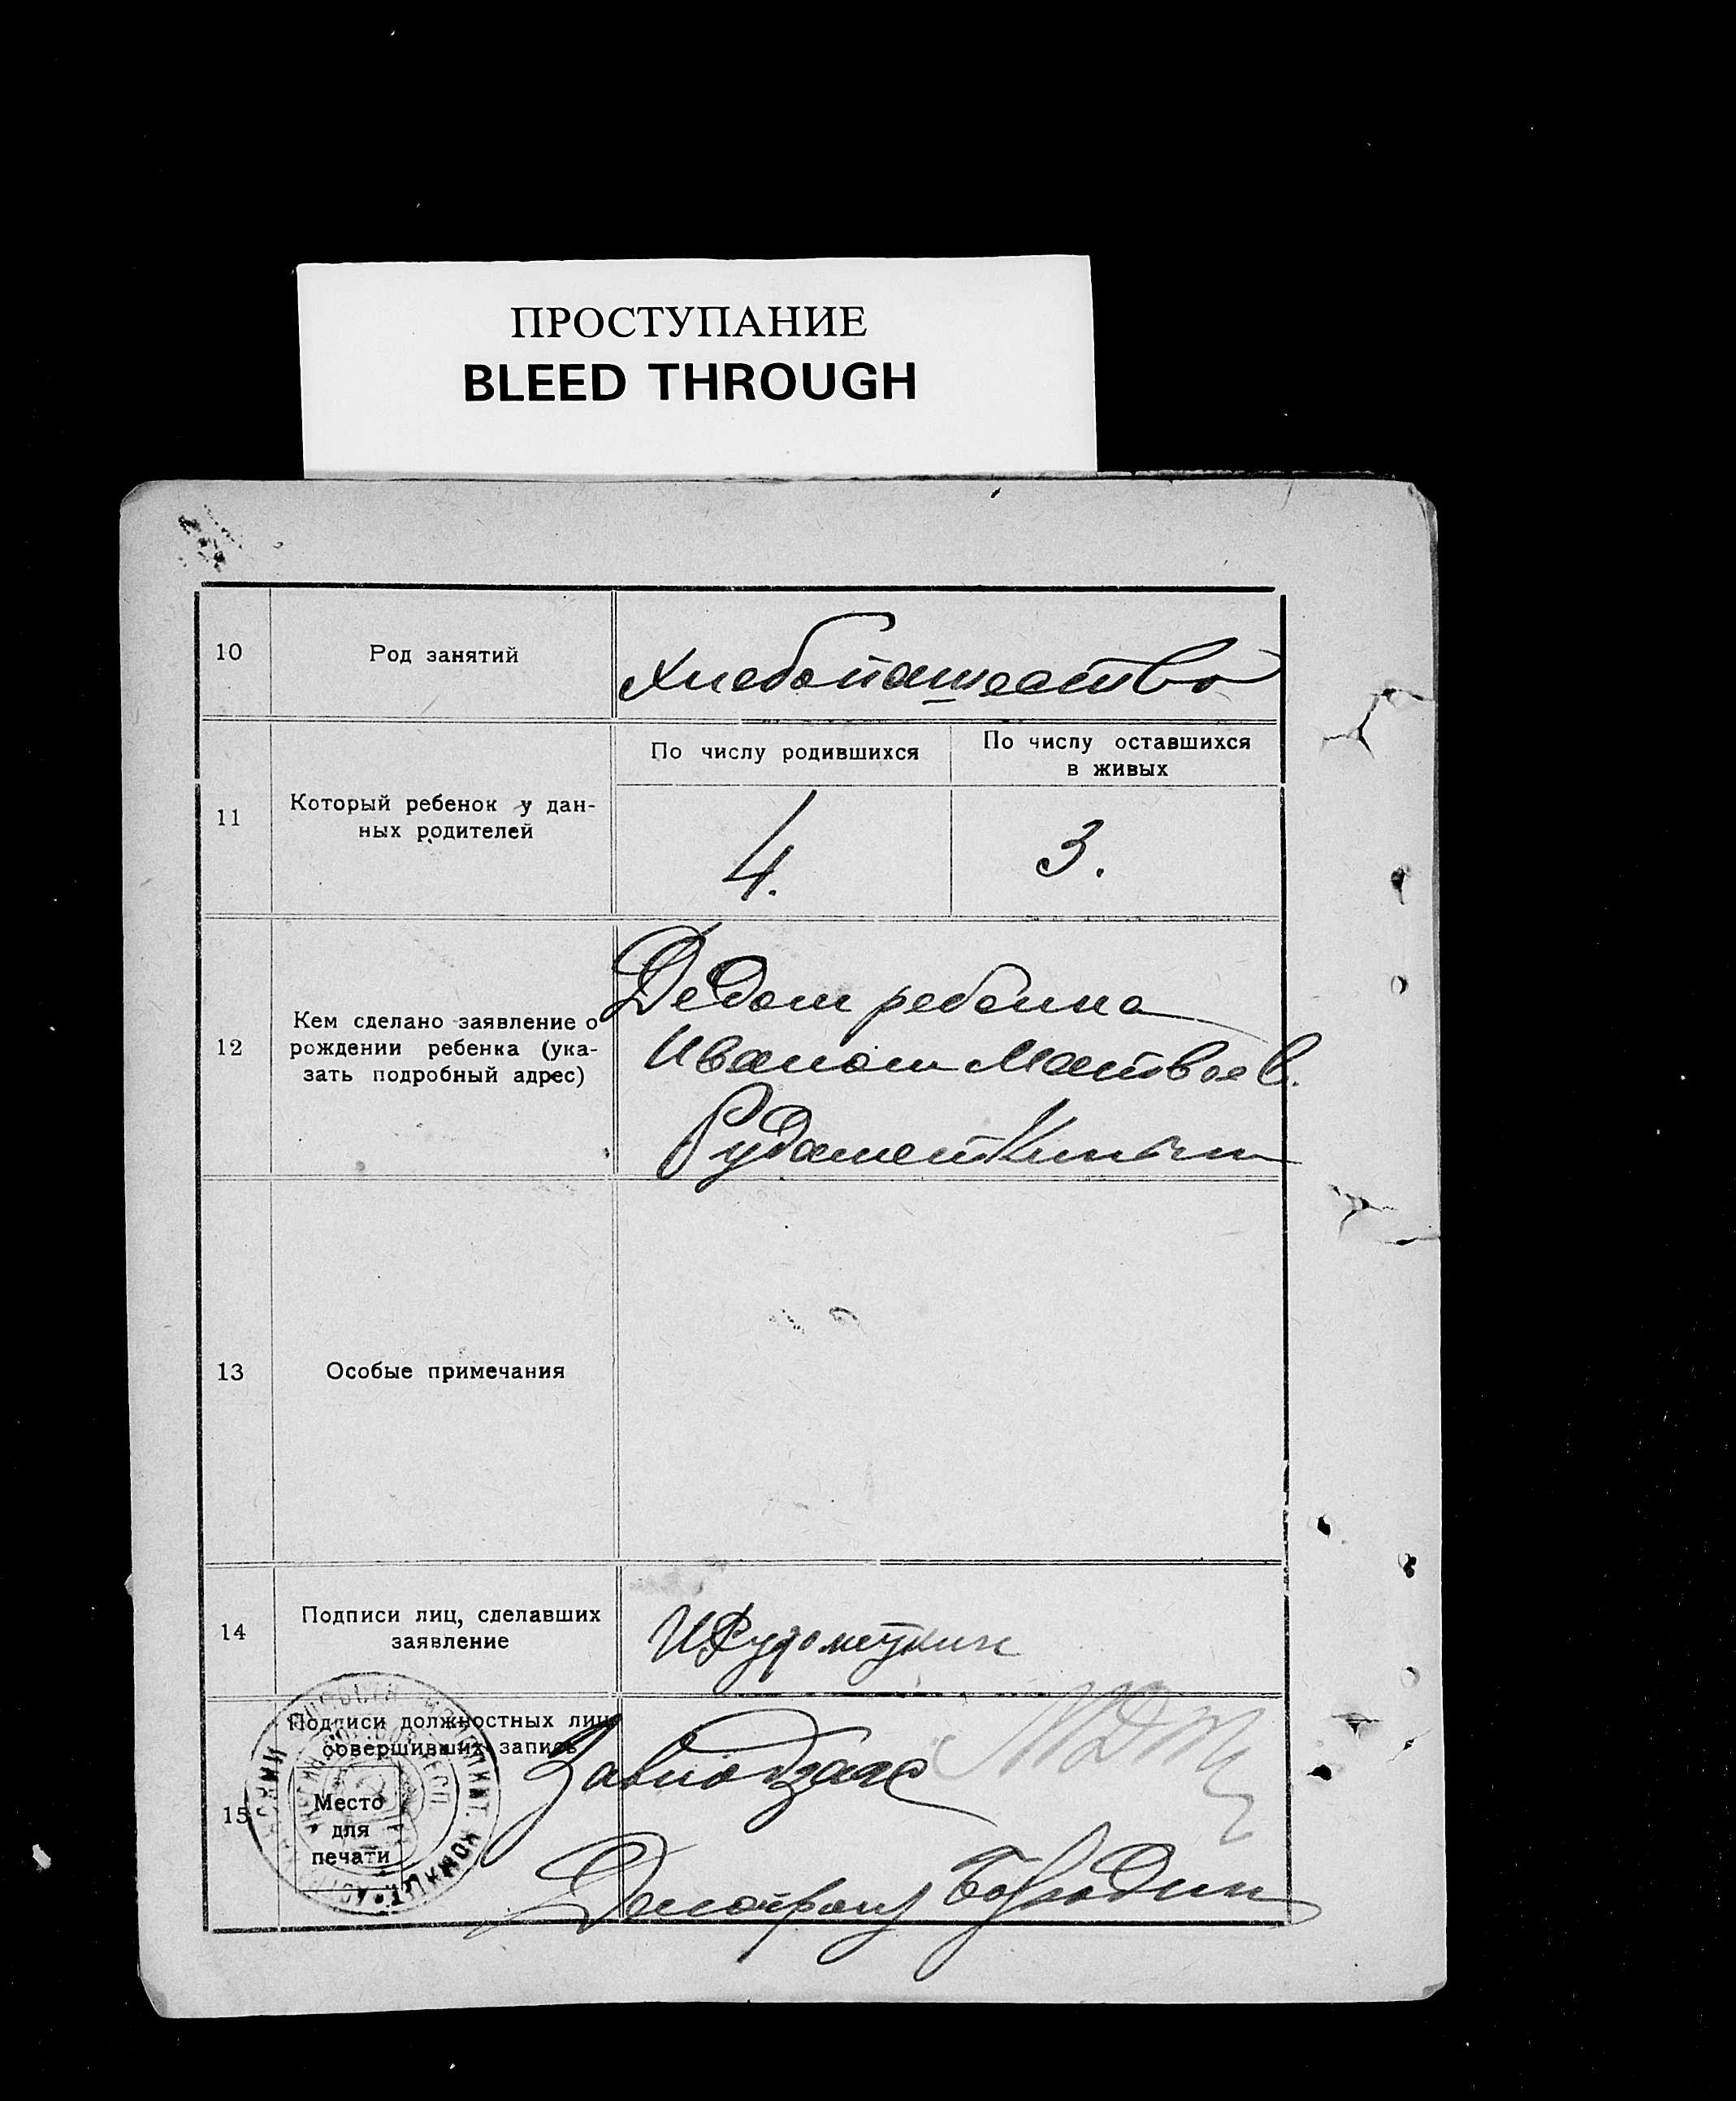 ПРОСТУПАНИЕ
BLEED THROUGH
10
Род занятий
Хлебопашество
11
Который ребенок у дан-
ных родителей
По числу родившихся
По числу оставшихся
в живых
4.
3.
12
Кем сделано заявление о
рождении ребенка (ука-
зать подробный адрес)
Дедом ребенка
Иваном Матвеев.
Рудаметкиным
13
Особые примечания
14
Подписи лиц, сделавших
заявление
И Рудометкин
15
Подписи должностных лиц,
совершивших запись
Место
для
печати
Завподзагс
Делопроиз Бородин